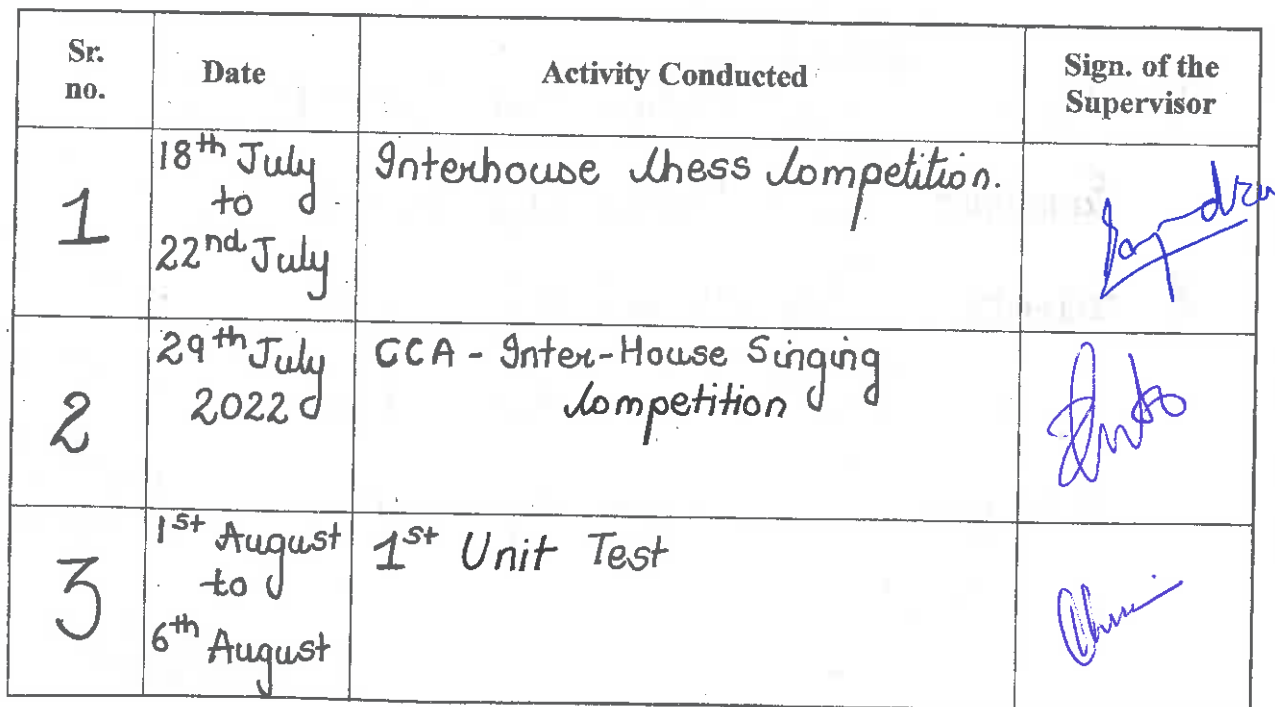 Sr. no.
Date
Activity Conducted
Sign. of the Supervisor
1
18th July
to
22nd July
Interhouse Chess Competition.
2
29th July
2022
CCA - Inter-House Singing
Competition
3
1st August
to
6th August
1st Unit Test